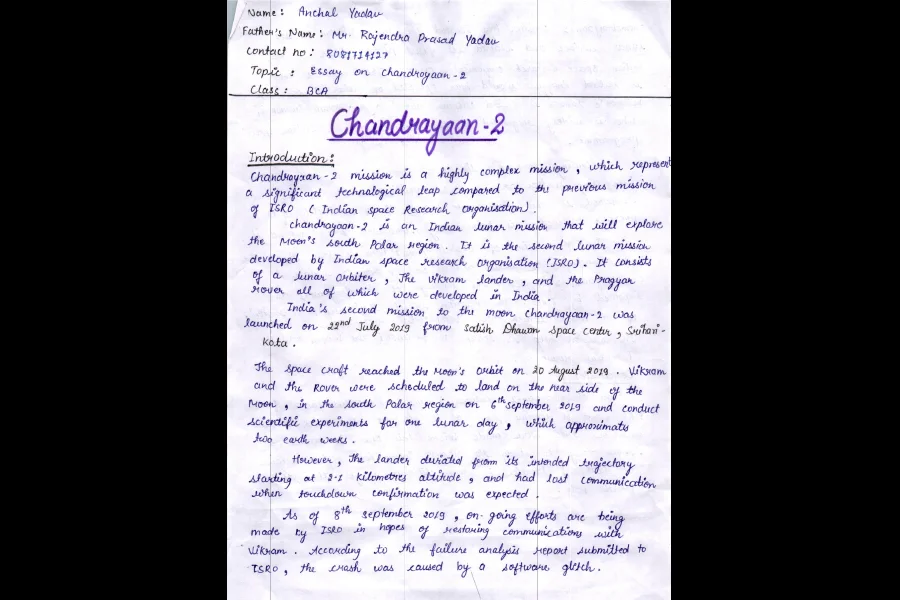 Name: Anchal Yadav
Father's Name: Mr. Rajendra Prasad Yadav
Contact no: 8081714127
Topic: Essay on Chandrayaan-2
Class: BCA
Chandrayaan-2
Introduction:
Chandrayaan-2 mission is a highly complex mission, which represent
a significant technological leap compared to the previous mission
of ISRO (Indian space Research organisation).
Chandrayaan-2 is an Indian lunar mission that will explore
the Moon's south Polar region. It is the second lunar mission
developed by Indian space research organisation (ISRO). It consists
of a lunar orbiter, The vikram lander, and the Pragyan
rover all of which were developed in India.
India's second mission to the moon chandrayaan-2 was
launched on 22nd July 2019 from Satish Dhawan Space center, Srihari-
kota.
The space craft reached the Moon's orbit on 20 August 2019. Vikram
and the Rover were scheduled to land on the near side of the
Moon, in the south Polar region on 6th september 2019 and conduct
scientific experiments for one lunar day, which approximates
two earth weeks.
However, The lander deviated from its intended trajectory
starting at 2-1 kilometres attitude, and had lost communication
when touchdown confirmation was expected.
As of 8th september 2019, on-going efforts are being
made by ISRO in hopes of restoring communications with
Vikram. According to the failure analysis report submitted to
ISRO, the crash was caused by a software glitch.